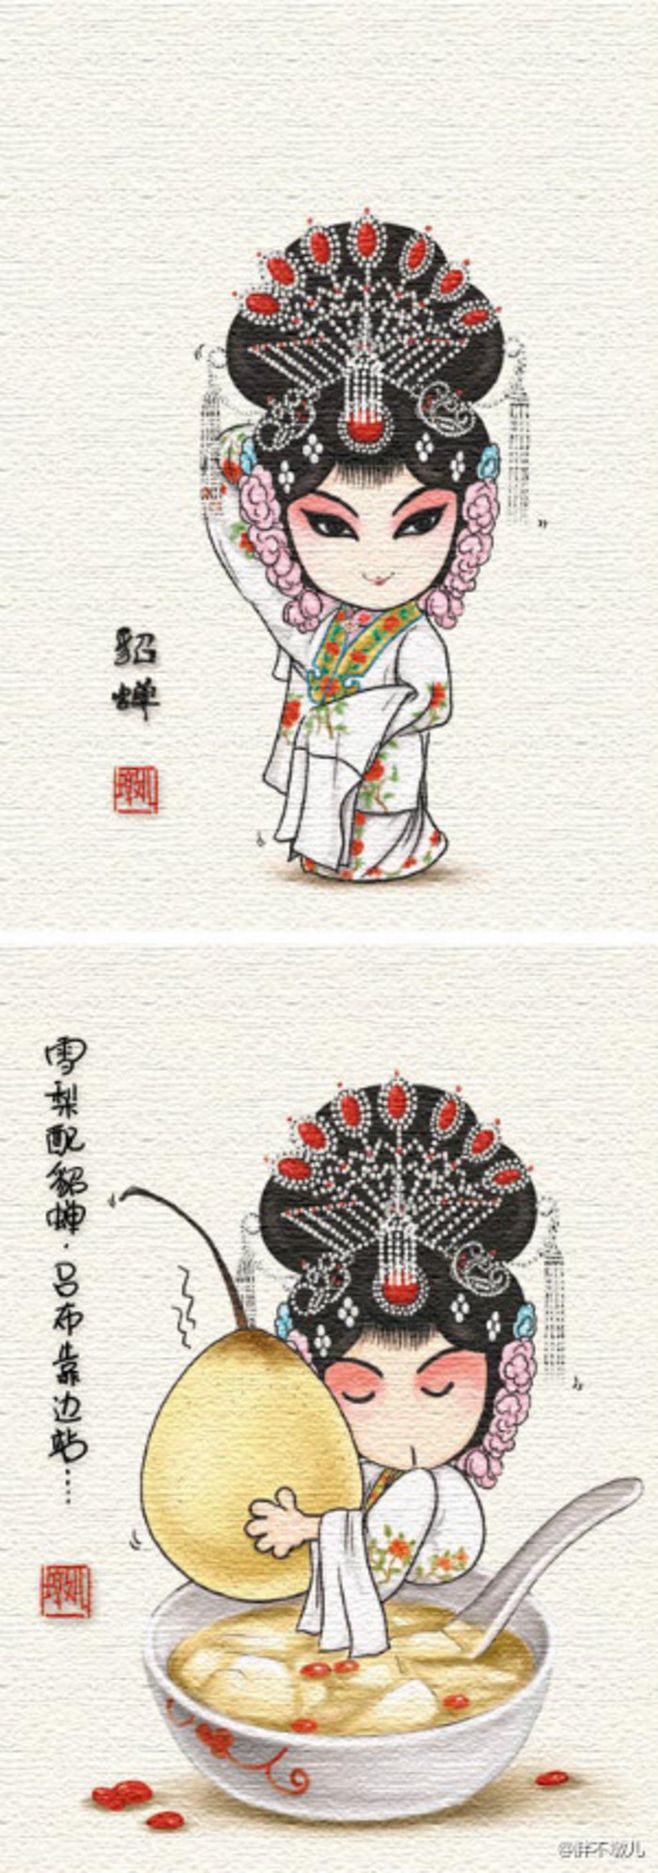 貂
蝉
雪梨配貂蝉.吕布靠边站……
@胖不墩儿